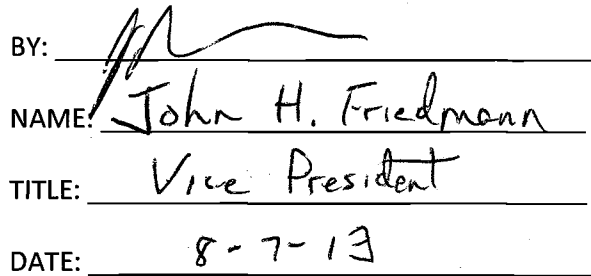 BY:
NAME: John H. Friedmann
TITLE: Vice President
DATE: 8-7-13